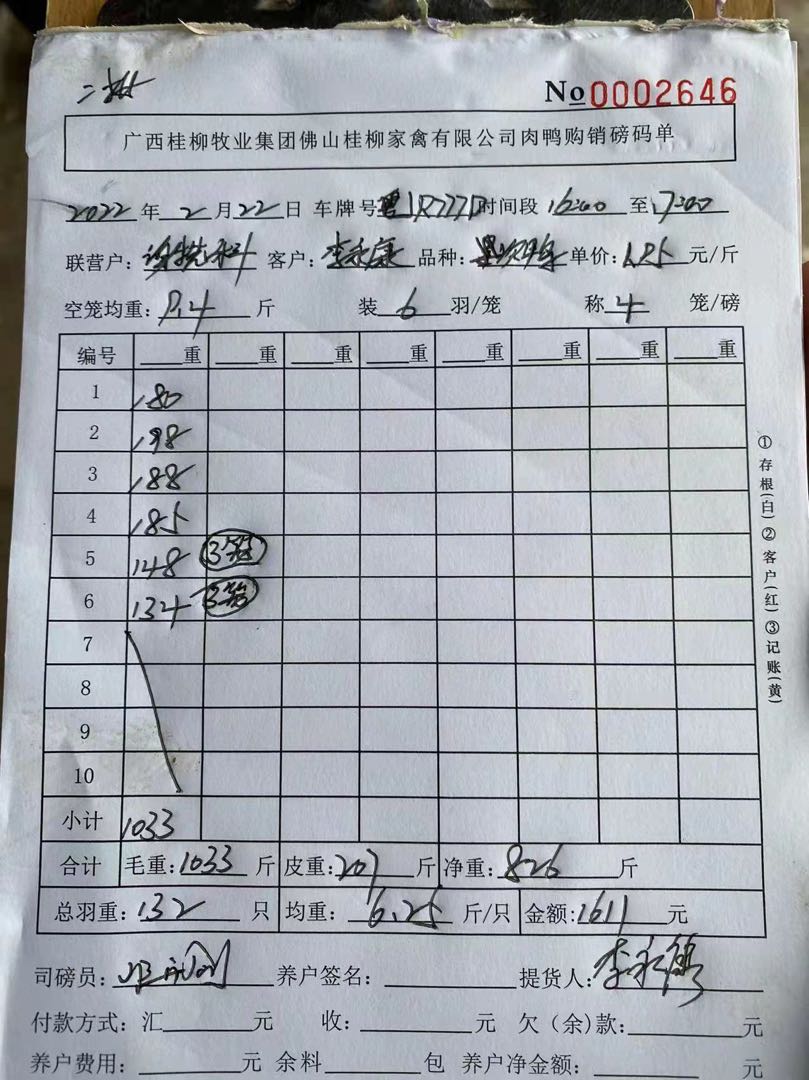 No 0002646
广西桂柳牧业集团佛山桂柳家禽有限公司肉鸭购销磅码单
2022 年 2 月 22 日 车牌号 时间段 16:00 至 17:00
联营户: 客户: 李永康 品种: 单价: 1.95 元/斤
空笼均重: 9.4 斤 装 6 羽/笼 称 4 笼/磅
编号 重 重 重 重 重 重 重 重
1 180
2 198
3 188
4 185
5 148 3笼
6 134 3笼
7
8
9
10
小计 1033
合计 毛重: 1033 斤 皮重: 207 斤 净重: 826 斤
总羽重: 132 只 均重: 6.25 斤/只 金额: 1611 元
司磅员: 养户签名: 提货人:
付款方式: 汇 元 收: 元 欠(余)款: 元
养户费用: 元 余料 包 养户净金额: 元
①存根(白)②客户(红)③记账(黄)